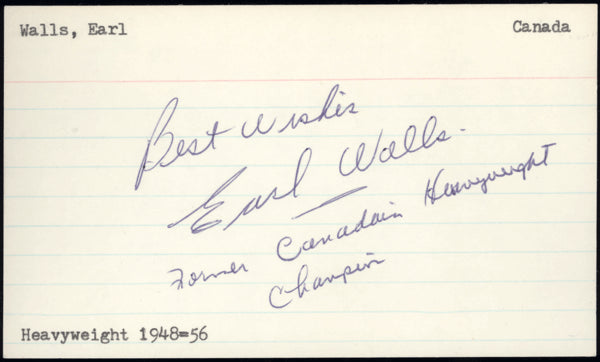 Walls, Earl
Canada
Best Wishes
Earl Walls.
Former Canadain Heavyweight
Champion
Heavyweight 1948=56